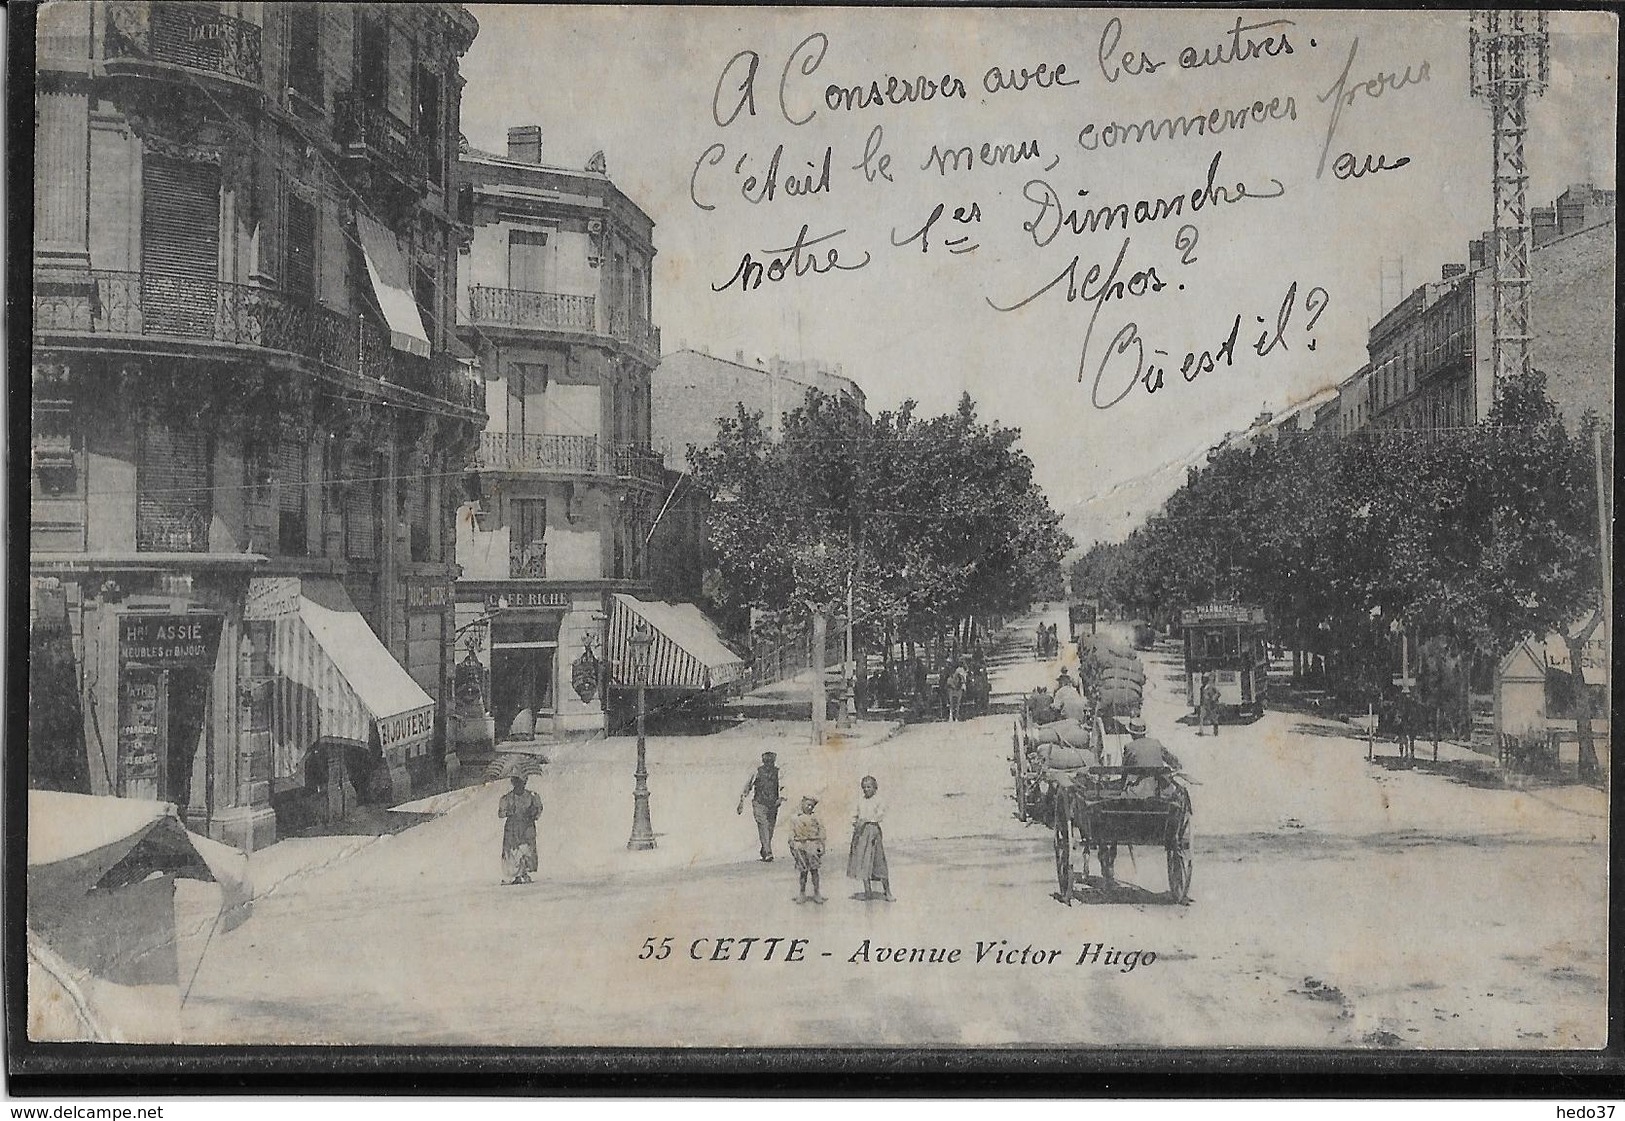 A Conserver avec les autres.
C'était le menu, commencer pour
notre 1er Dimanche au
repos?
Où est il?
CAFE RICHE
PHARMACIE
Hri ASSIÉ
MEUBLES ET BIJOUX
BIJOUTERIE
55 CETTE - Avenue Victor Hugo
delcampe.net
hedo37